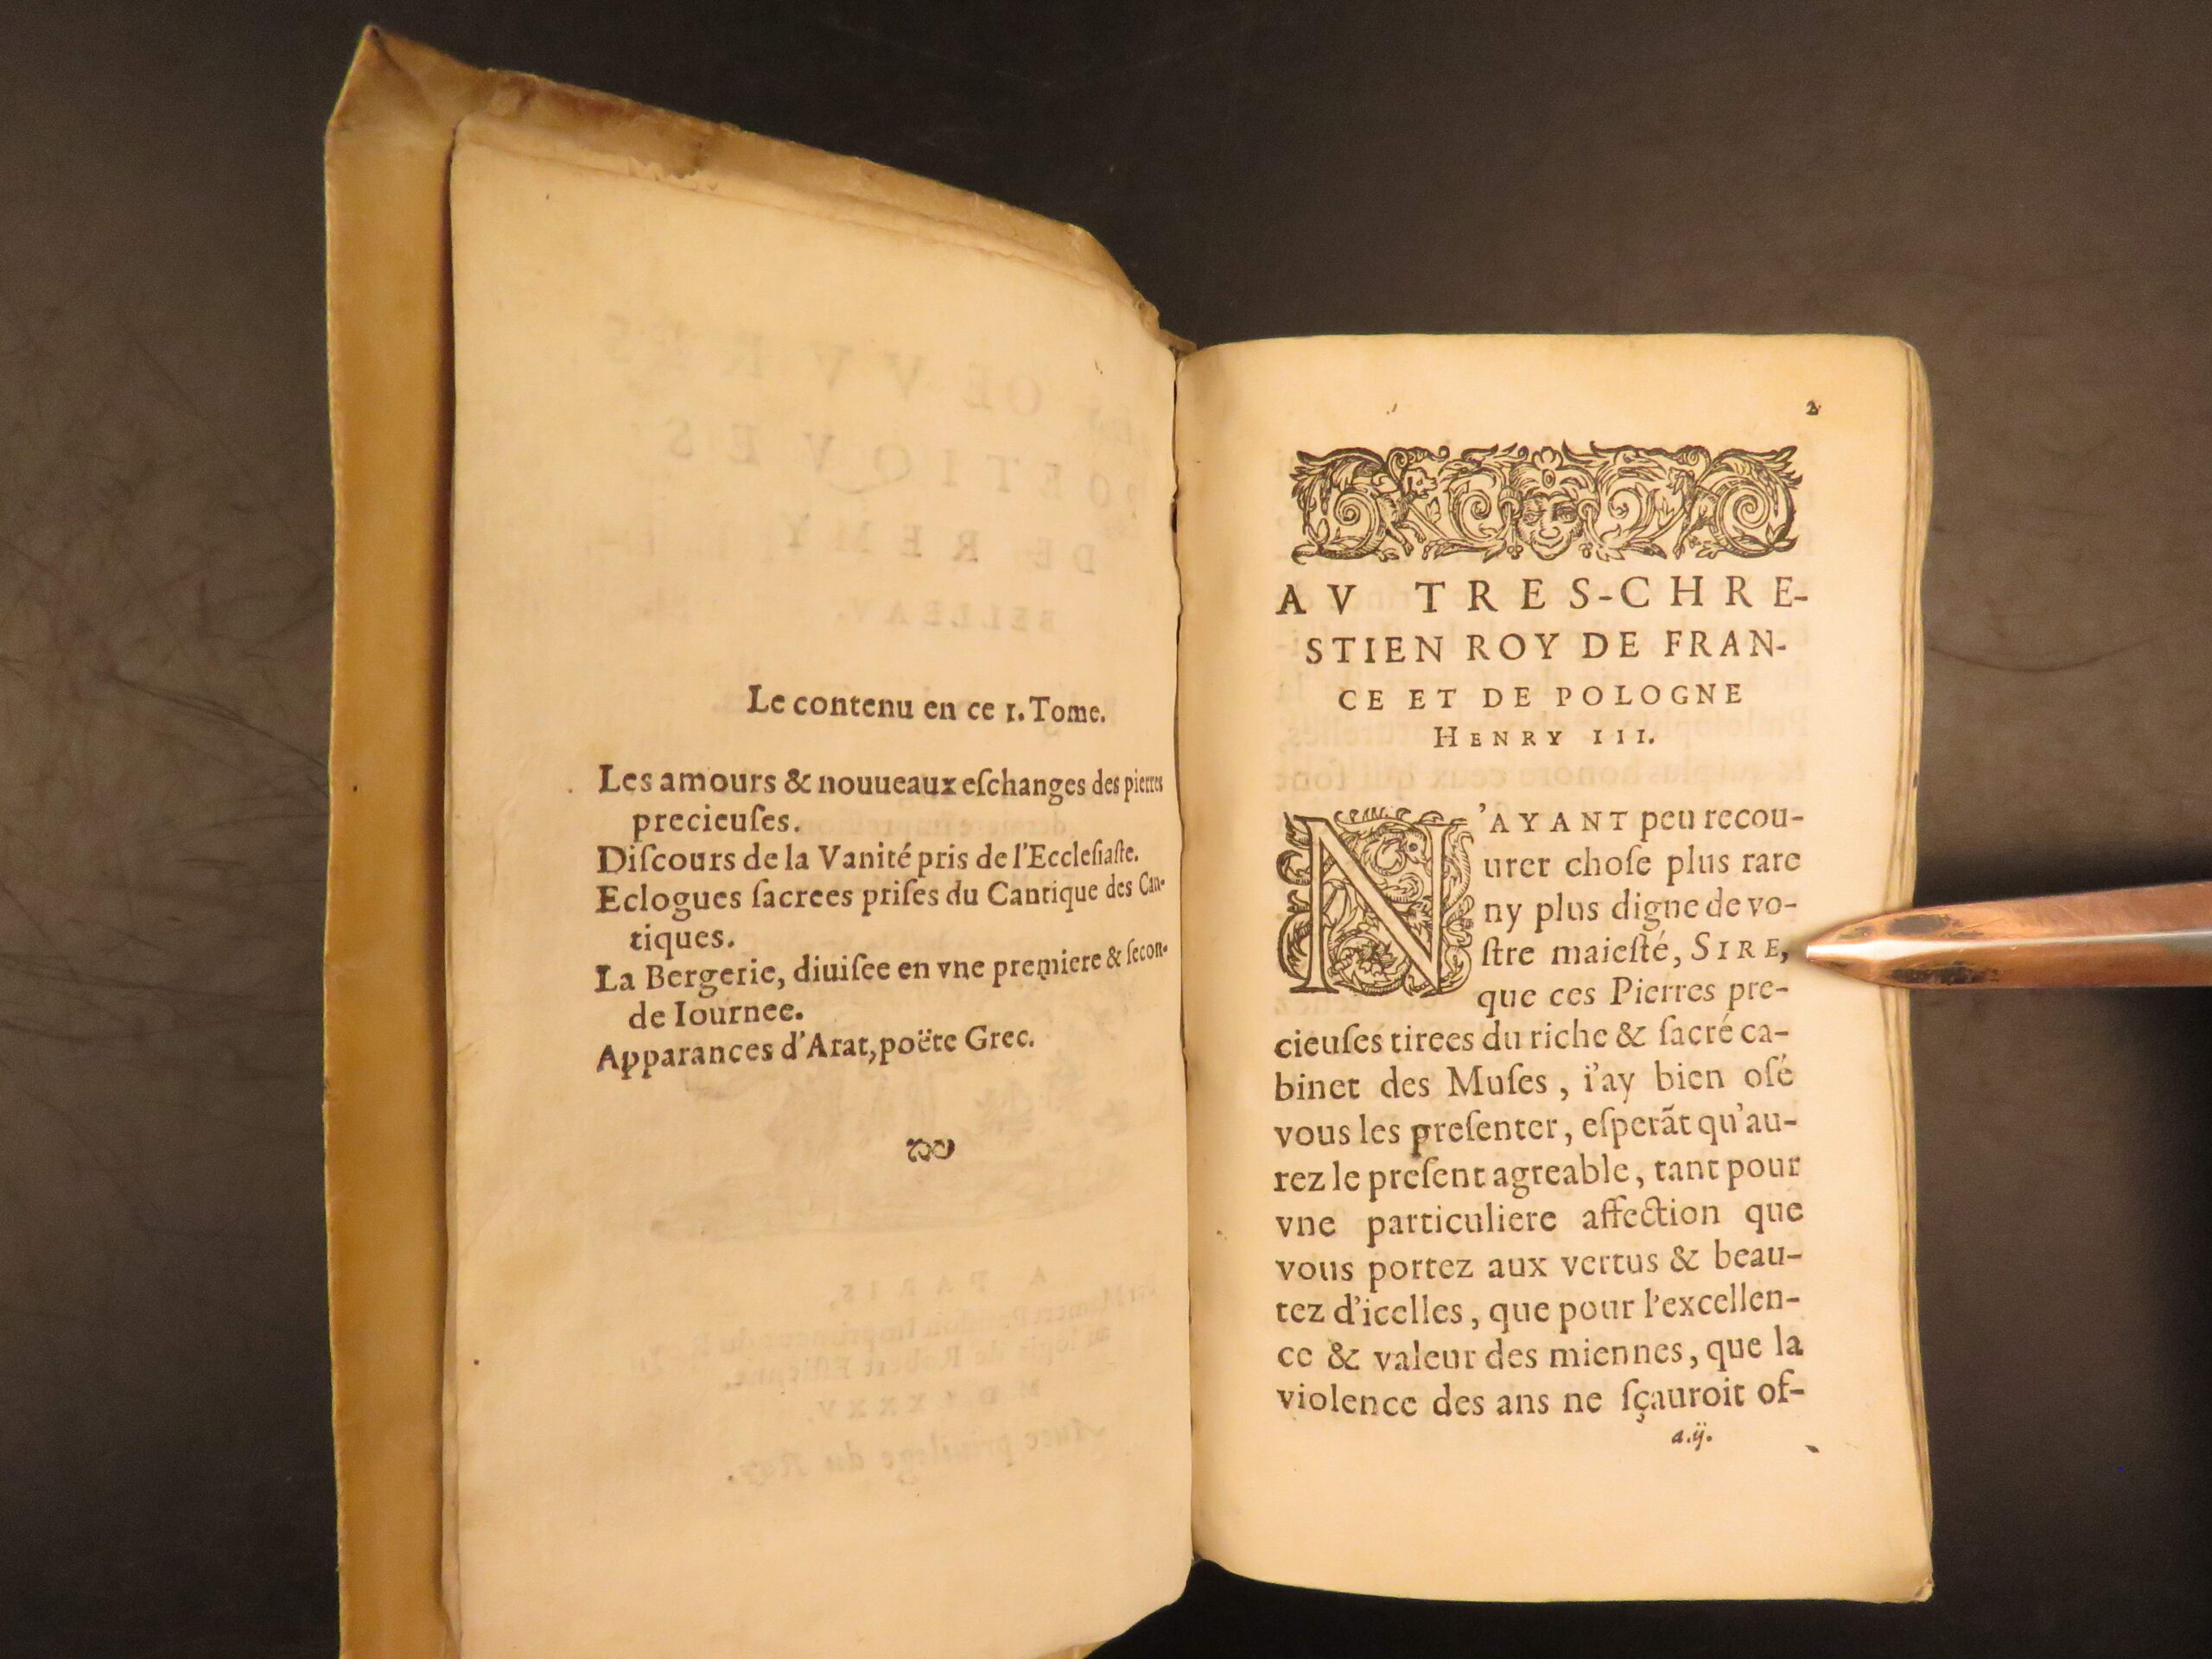 Le contenu en ce 1. Tome.
Les amours & nouueaux eſchanges des pierres
precieuſes.
Diſcours de la Vanité pris de l'Eccleſiaſte.
Eclogues ſacrees priſes du Cantique des Can-
tiques.
La Bergerie, diuiſee en vne premiere & ſecon-
de Iournee.
Apparances d'Arat, poëte Grec.
2
AV TRES-CHRE-
STIEN ROY DE FRAN-
CE ET DE POLOGNE
HENRY III.
N'AYANT peu recou-
urer choſe plus rare
ny plus digne de vo-
ſtre maieſté, SIRE,
que ces Pierres pre-
cieuſes tirees du riche & ſacré ca-
binet des Muſes, i'ay bien oſé
vous les preſenter, eſperãt qu'au-
rez le preſent agreable, tant pour
vne particuliere affection que
vous portez aux vertus & beau-
tez d'icelles, que pour l'excellen-
ce & valeur des miennes, que la
violence des ans ne ſçauroit of-
a.ij.